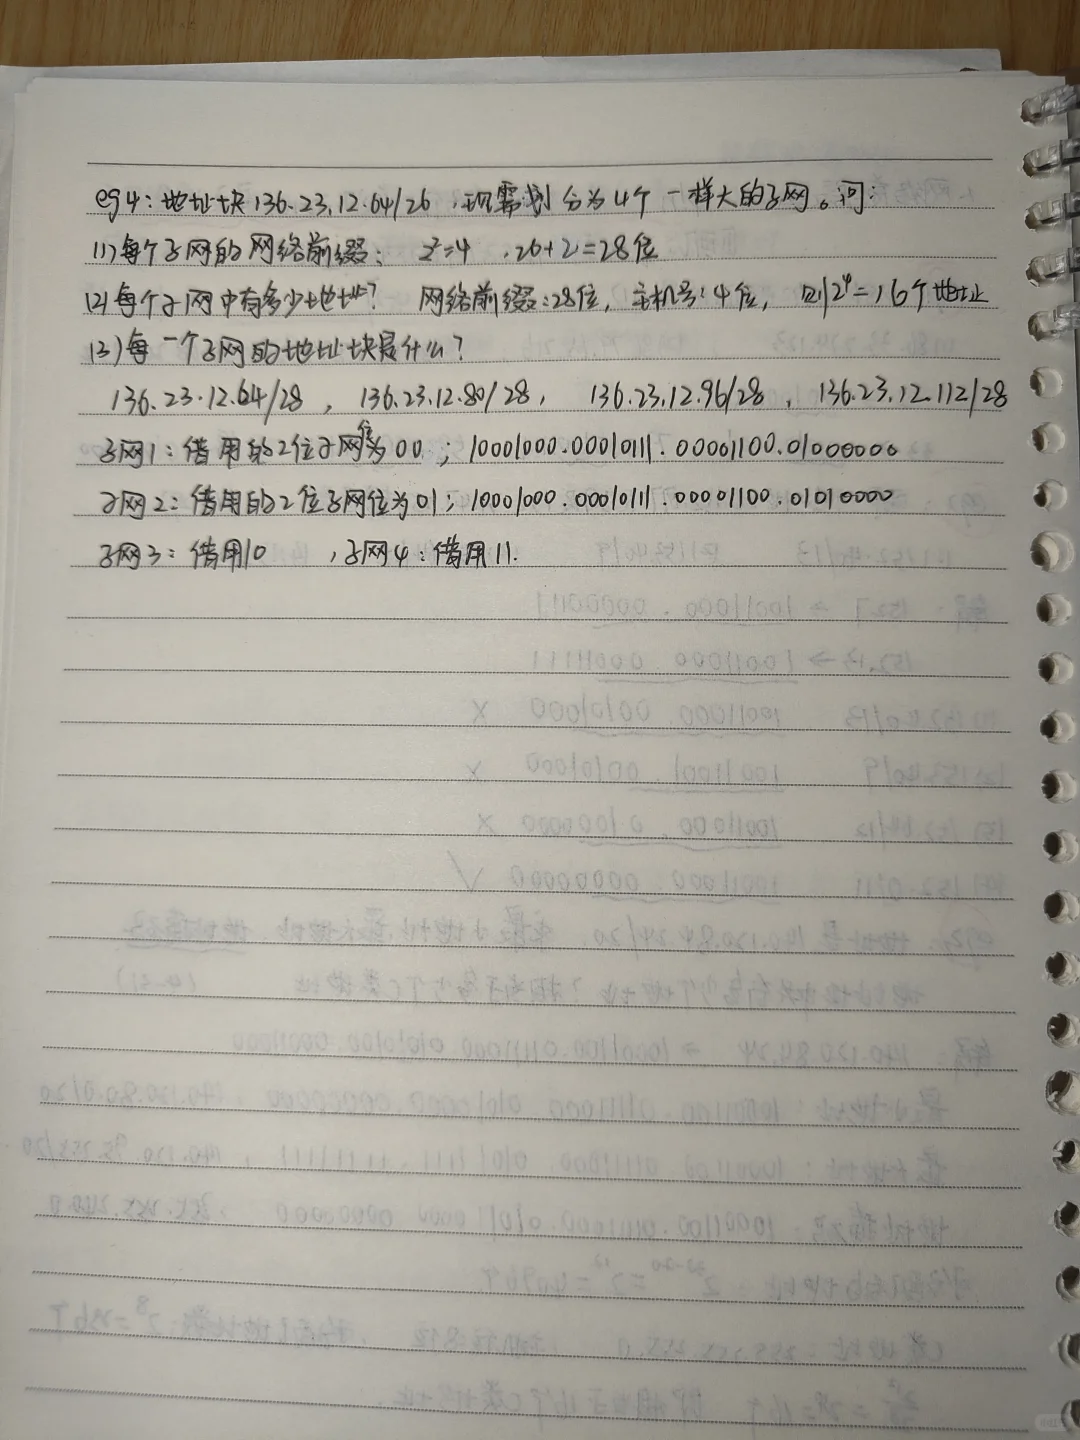 eg4：地址块136.23.12.64/26，现需划分为4个一样大的子网。问：
(1)每个子网的网络前缀： 2²=4 ，26+2=28位
(2)每个子网中有多少地址？ 网络前缀：28位，主机号：4位，则2⁴=16个地址
(3)每一个子网的地址块是什么？
136.23.12.64/28，136.23.12.80/28，136.23.12.96/28，136.23.12.112/28
子网1：借用的2位子网位为00；10001000.00010111.00001100.01000000
子网2：借用的2位子网位为01；10001000.00010111.00001100.01010000
子网3：借用10 ，子网4：借用11.